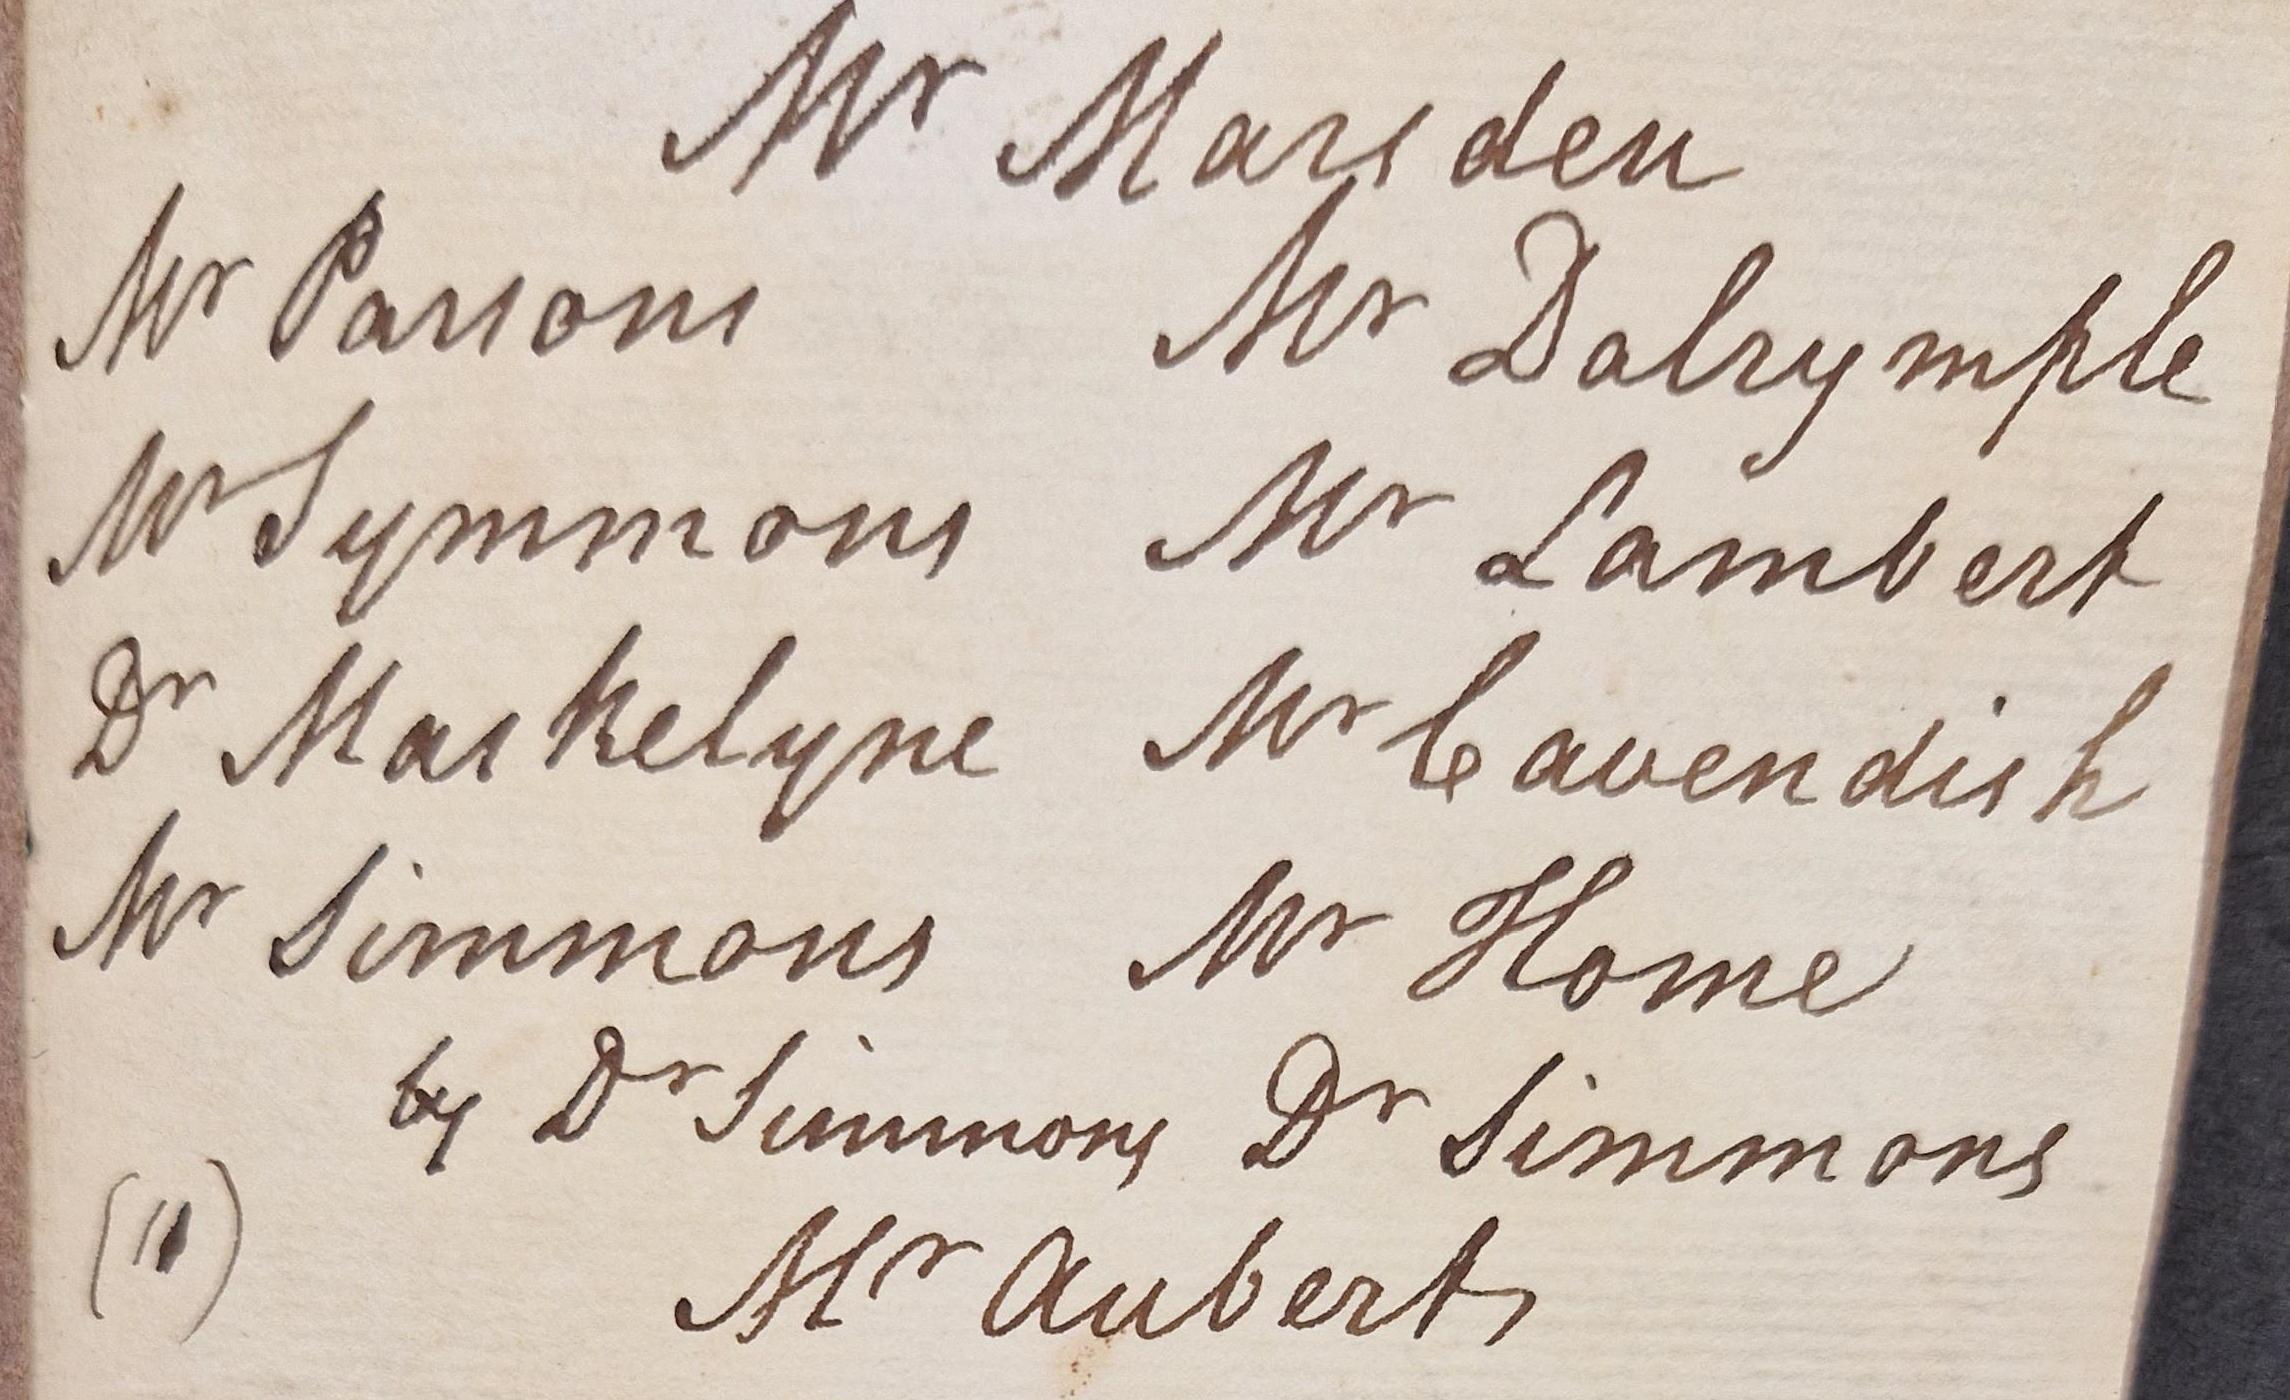 Mr Marsden
Mr Parsons Mr Dalrymple
Mr Symmons Mr Lambert
Dr Maskelyne Mr Cavendish
Mr Simmons Mr Home
by Dr Simmons Dr Simmons
(11) Mr Aubert,